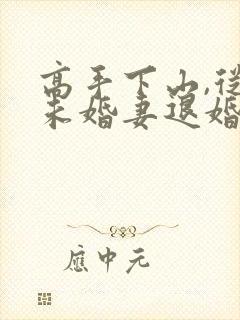 高手下山,從
未婚妻退婚
應中元